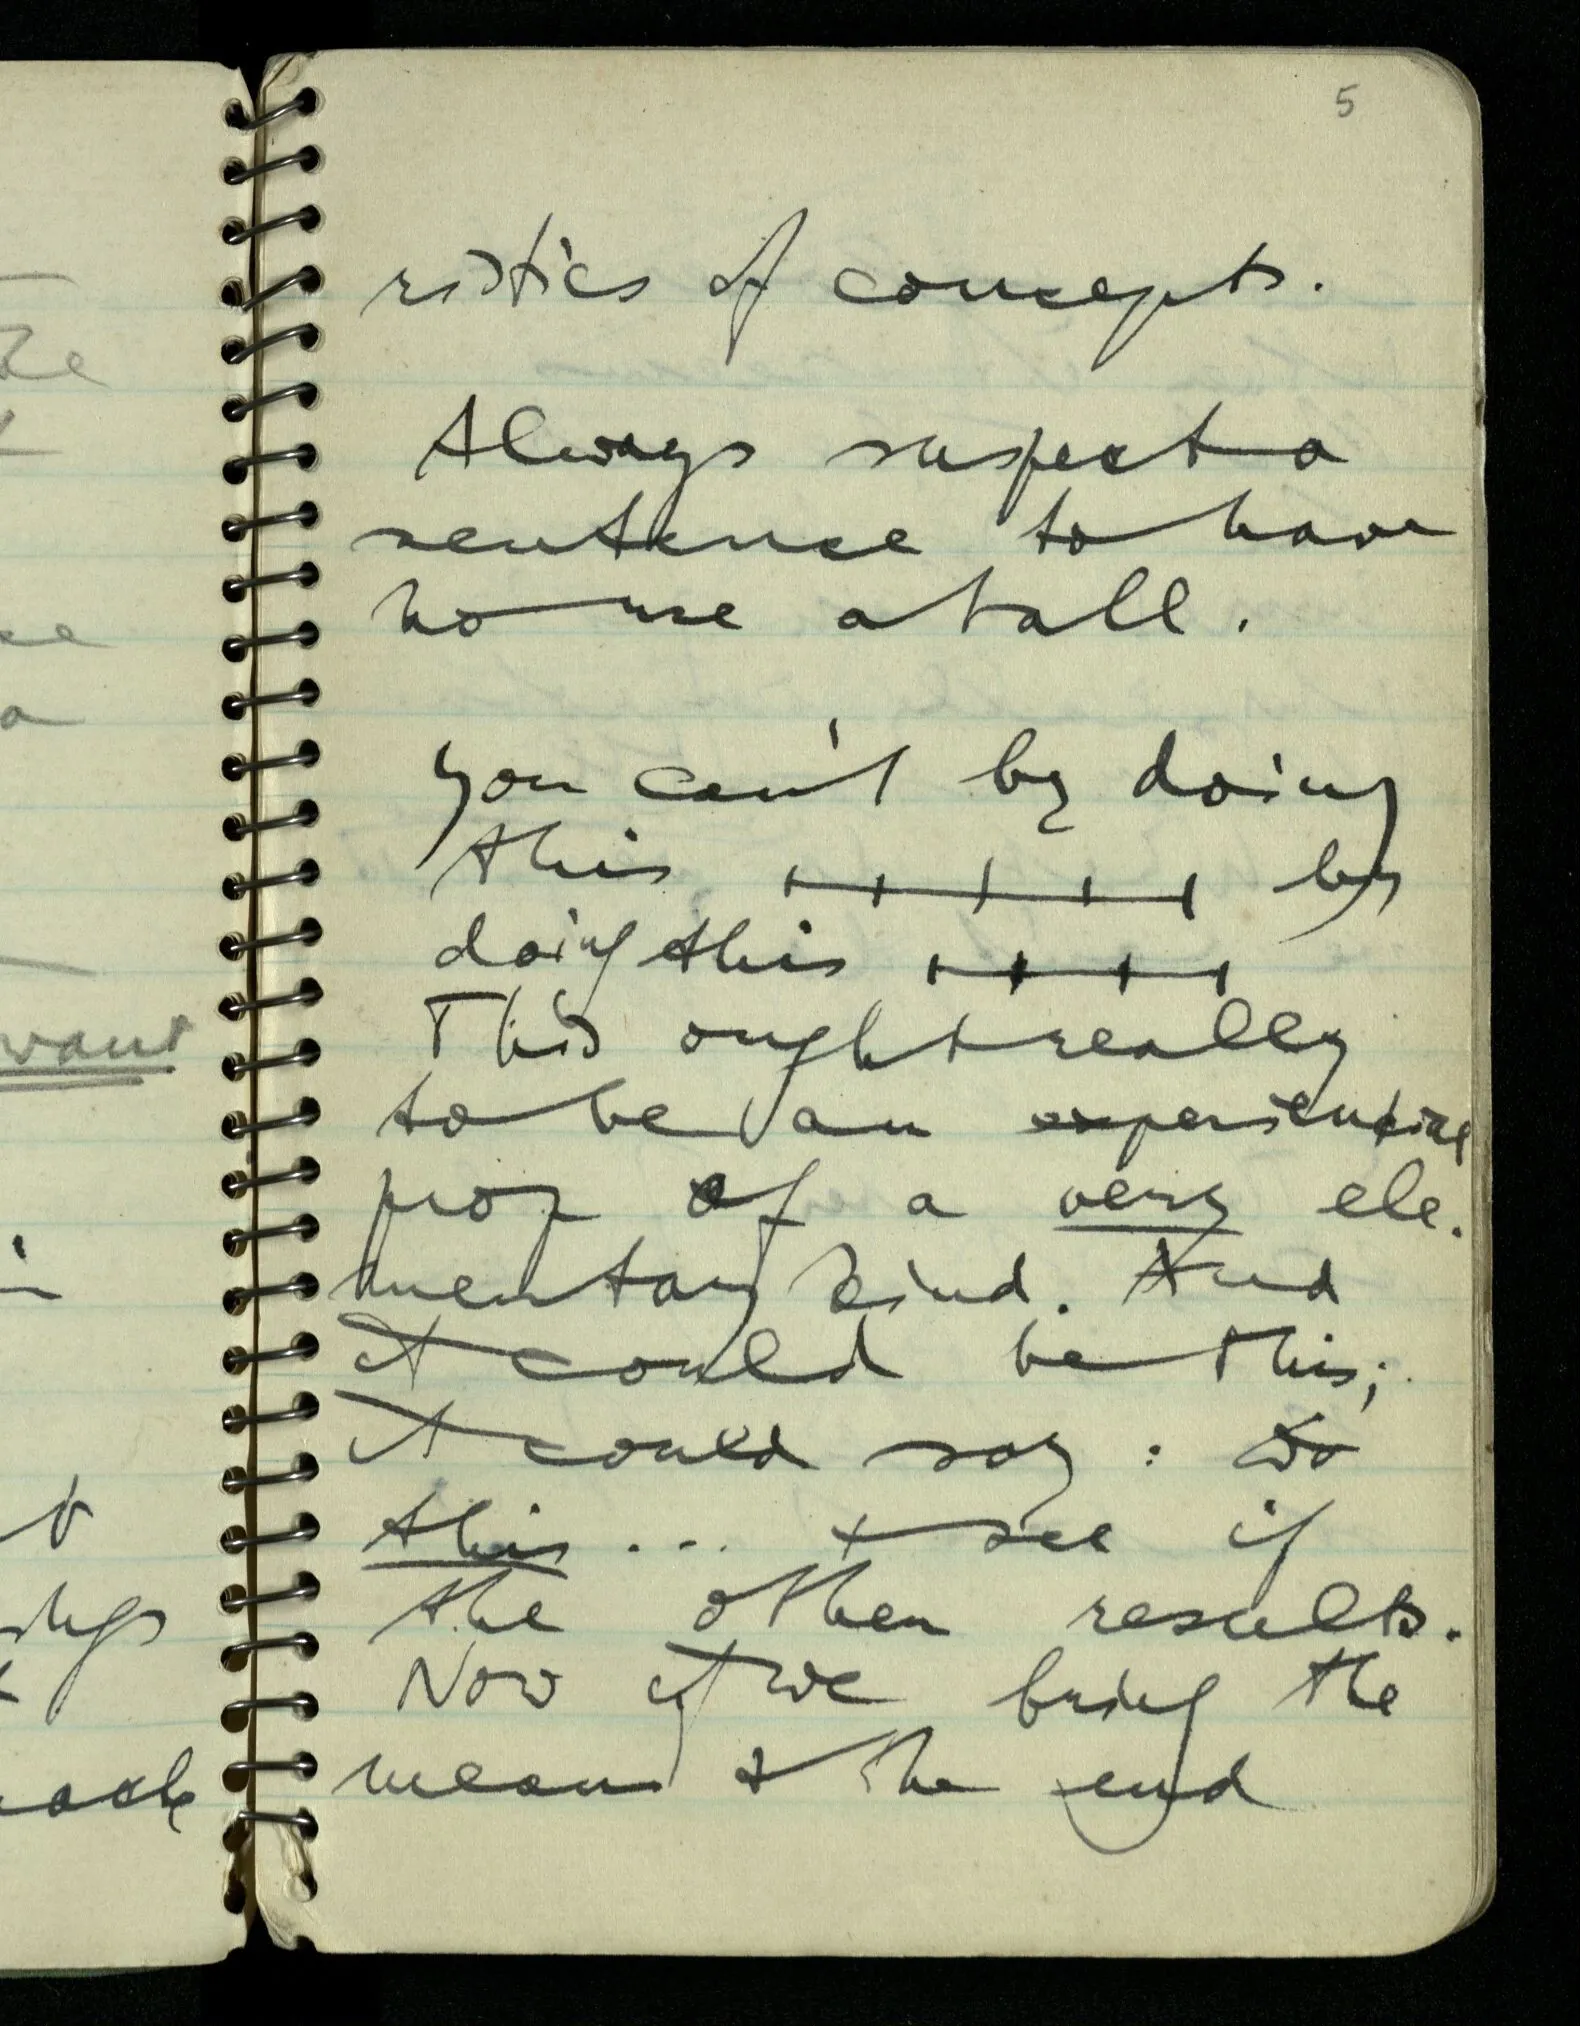 5
ristics of concepts.
Always suspect a
sentence to have
no use at all.
You can't by doing
this by
doing this
This ought really
to be an experiential
prop of a very ele-
mentary kind. And
it could be this;
it could say: Do
this ... & see if
the other results.
Now if we bring the
means & the end
want